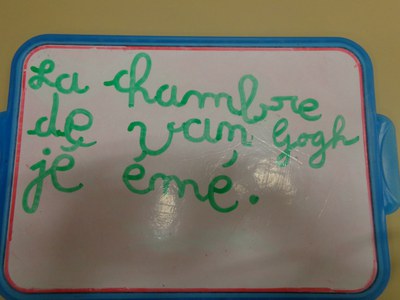 La chambre
de van Gogh
jé émé.